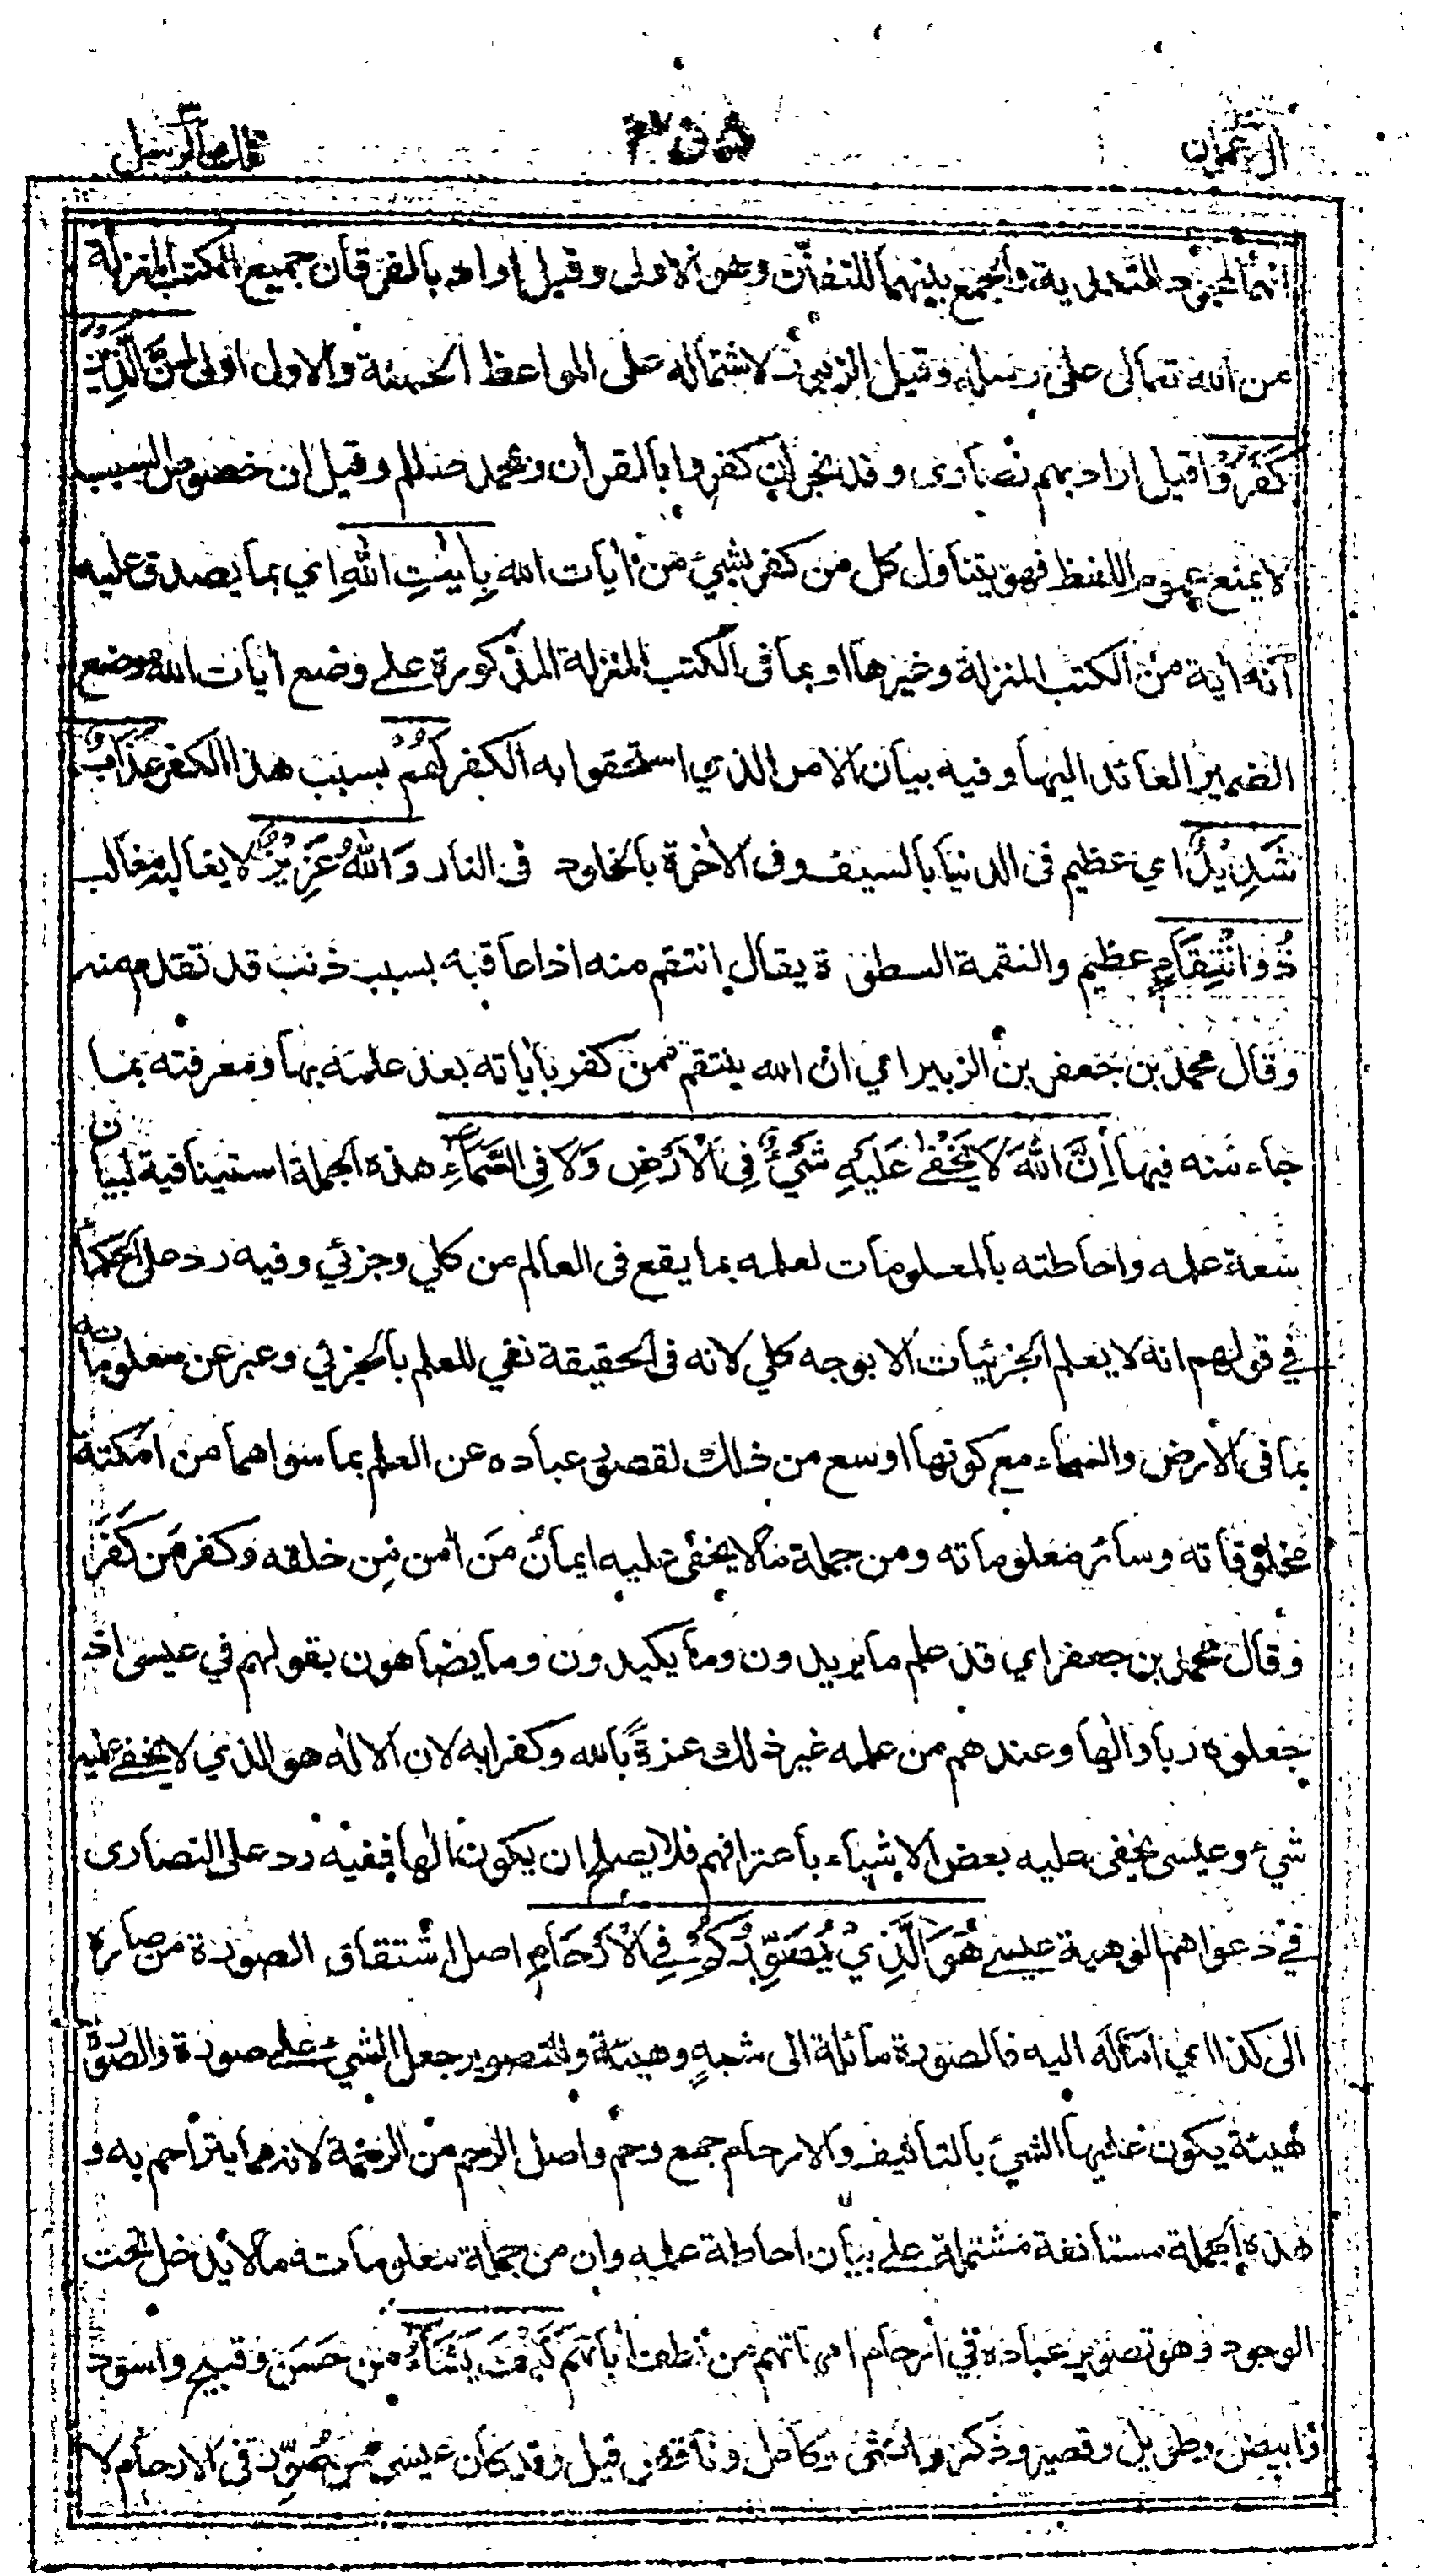 آل عمران ٣٥٥ تلك الرسل
للتعدية والجمع بينهما للتفنن وهو الاولى وقيل اراد بالفرقان جميع الكتب المنزلة
من الله تعالى على رسله وقيل الزبور لاشتماله على المواعظ الحسنة والاول اولى اِنَّ الَّذِيْنَ
كَفَرُوْا قيل اراد بهم نصارى وفد نجران كفروا بالقرأن وبمحمد صللم وقيل ان خصوص السبب
لا يمنع عموم اللفظ فهو يتناول كل من كفر بشيء من أيات الله بِاٰيٰتِ اللّٰهِ اي بما يصدق عليه
انه أية من الكتب المنزلة وغيرها او بما فى الكتب المنزلة المذكورة علے وضع أيات الله موضع
الضمير العائد اليها وفيه بيان الامر الذي استحقوا به الكفر لَهُمْ بسبب هذا الكفر عَذَابٌ
شَدِيْدٌ اي عظيم فى الدنيا بالسيف وفى الأخرة بالخلود فى النار وَاللّٰهُ عَزِيْزٌ لا يغالبه مغالب
ذُو انْتِقَامٍ عظيم والنقمة السطوة يقال انتقم منه اذا عاقبه بسبب ذنب قد تقدم منه
وقال محمد بن جعفر بن الزبير اي ان الله ينتقم ممن كفر بأياته بعد علمه بها ومعرفته بما
جاء منه فيها اِنَّ اللّٰهَ لَا يَخْفٰى عَلَيْهِ شَيْءٌ فِى الْاَرْضِ وَلَا فِى السَّمَآءِ هذه الجملة استينافية لبيان
سعة علمه واحاطته بالمعلومات لعلمه بما يقع فى العالم من كلي وجزئي وفيه رد على الحكماء
في قولهم انه لا يعلم الجزئيات الا بوجه كلي لانه فى الحقيقة نفي للعلم بالجزئي وعبر عن معلوماته
بما فى الارض والسماء مع كونها اوسع من ذلك لقصور عباده عن العلم بما سواهما من امكنة
مخلوقاته وسائر معلوماته ومن جملة ما لا يخفى عليه ايمان من أمن من خلقه وكفر من كفر
وقال محمد بن جعفر اي قد علم ما يريدون وما يكيدون وما يضاهون بقولهم في عيسى اذ
جعلوه ربا والٰها وعندهم من علمه غير ذلك عزة بالله وكفرا به لان الالٰه هو الذي لا يخفے عليه
شيء وعيسى يخفى عليه بعض الاشياء باعترافهم فلا يصلح ان يكون الٰها ففيه رد على النصارى
في دعواهم الوهية عيسے هُوَ الَّذِيْ يُصَوِّرُكُمْ فِي الْاَرْحَامِ اصل اشتقاق الصورة من صاره
الى كذا اي اماله اليه فالصورة مائلة الى شبه وهيئة والتصوير جعل الشيء علے صورة والصورة
هيئة يكون عليها الشيء بالتاليف والارحام جمع رحم واصل الرحم من الرحمة لانه مما يتراحم به و
هذه الجملة مستانفة مشتملة علے بيان احاطة علمه وان من جملة معلوماته ما لا يدخل تحت
الوجود وهو تصوير عباده في ارحام امهاتهم من نطف أبائهم كَيْفَ يَشَآءُ من حسن وقبيح واسود
وابيض وطويل وقصير وذكر وانثى وكامل وناقص قيل وقد كان عيسى ممن صُوّر فى الارحام لا